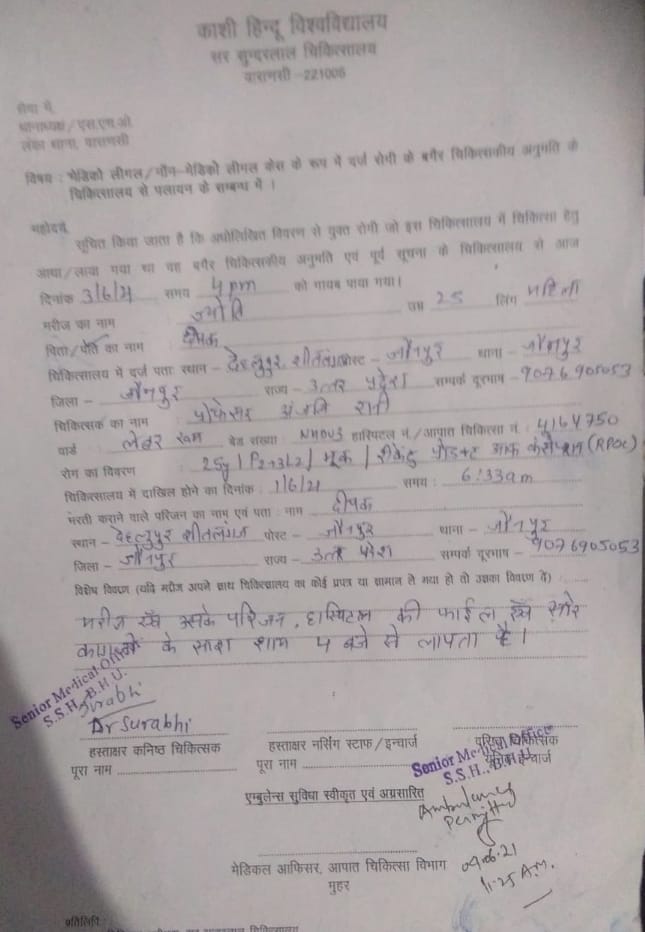 काशी हिन्दू विश्वविद्यालय
सर सुन्दरलाल चिकित्सालय
वाराणसी -221005
सेवा में,
थानाध्यक्ष/एस.एम.ओ.
लंका थाना, वाराणसी
विषय : मेडिको लीगल/नॉन-मेडिको लीगल केस के रूप में दर्ज रोगी के बगैर चिकित्सकीय अनुमति के
चिकित्सालय से पलायन के सम्बन्ध में ।
महोदय,
सूचित किया जाता है कि अधोलिखित विवरण से युक्त रोगी जो इस चिकित्सालय में चिकित्सा हेतु
आया/लाया गया था वह बगैर चिकित्सकीय अनुमति एवं पूर्व सूचना के चिकित्सालय से आज
दिनांक 3/6/21 समय 4pm को गायब पाया गया।
मरीज का नाम ज्योति उम्र 25 लिंग महिला
पिता/पति का नाम दीपक
चिकित्सालय में दर्ज पता: स्थान - देहलुपुर शीतलगंज पोस्ट - जौनपुर थाना - जौनपुर
जिला - जौनपुर राज्य - उत्तर प्रदेश सम्पर्क दूरभाष - 9076905053
चिकित्सक का नाम : प्रोफेसर अंजलि रानी
वार्ड लेबर रूम बेड संख्या : हास्पिटल नं./आपात चिकित्सा नं. : 4164750
रोग का विवरण 25y / P2+3L2 / मूक / प्रोडक्ट आफ कंसेप्शन (RPOC)
चिकित्सालय में दाखिल होने का दिनांक : 1/6/21 समय : 6:33am
भरती कराने वाले परिजन का नाम एवं पता : नाम दीपक
स्थान - देहलुपुर शीतलगंज पोस्ट - जौनपुर थाना - जौनपुर
जिला - जौनपुर राज्य - उत्तर प्रदेश सम्पर्क दूरभाष - 9076905053
विशेष विवरण (यदि मरीज अपने साथ चिकित्सालय का कोई प्रपत्र या सामान ले गया हो तो उसका विवरण दें) :
मरीज एवं उसके परिजन, हास्पिटल की फाईल एवं और
कागजो के साथ शाम 4 बजे से लापता है।
Senior Medical Officer
S.S.H., B.H.U.
Surabhi
Dr Surabhi
हस्ताक्षर कनिष्ठ चिकित्सक हस्ताक्षर नर्सिंग स्टाफ/इन्चार्ज वरिष्ठ चिकित्सक
पूरा नाम पूरा नाम यूनिट इन्चार्ज
Senior Medical Officer
S.S.H., B.H.U.
एम्बुलेन्स सुविधा स्वीकृत एवं अग्रसारित
Ambulance
Permitted
04.06.21
11.25 A.M.
मेडिकल आफिसर, आपात चिकित्सा विभाग
मुहर
प्रतिलिपि :